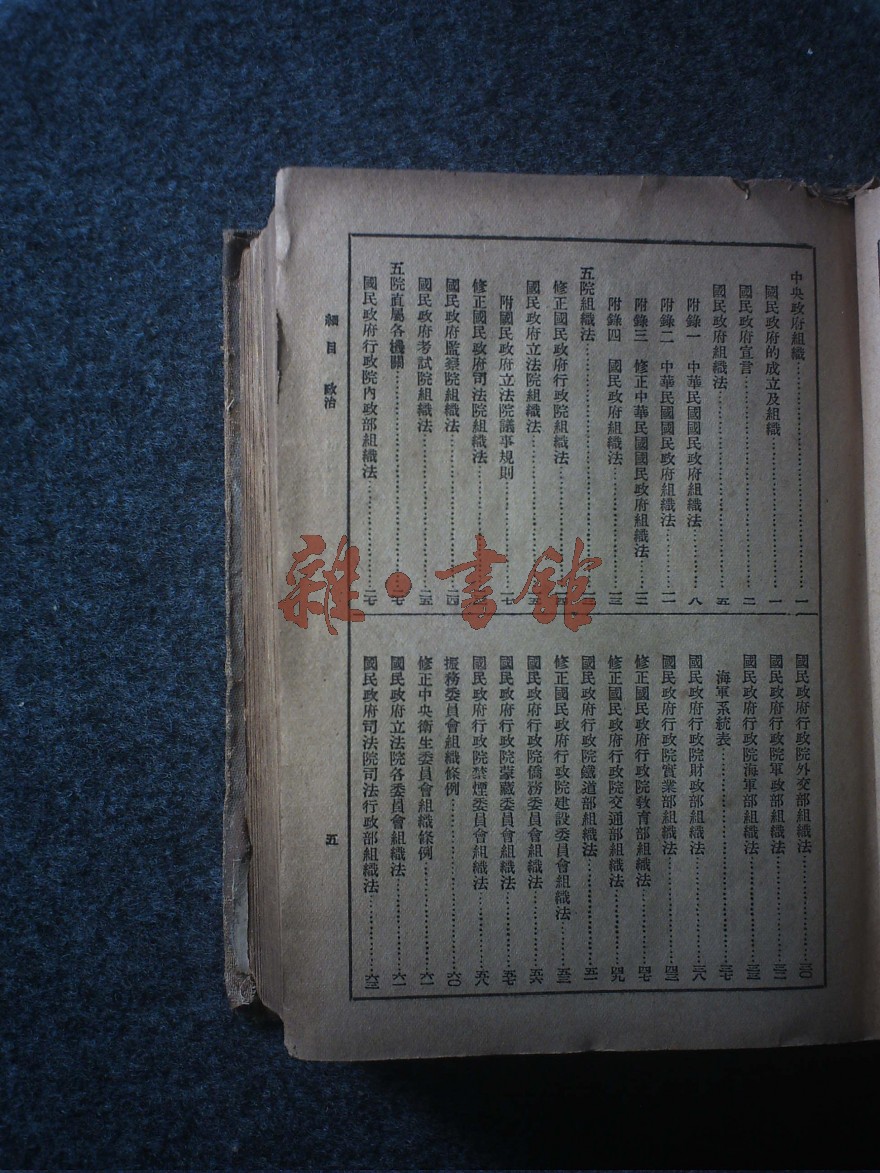 中央政府組織……一
國民政府的成立及組織……一
國民政府宣言……二
國民政府組織法……五
附錄一 中華民國國民政府組織法……八
附錄二 中華民國國民政府組織法……一一
附錄三 修正中華民國國民政府組織法……
附錄四 國民政府組織法……
五院組織法……
修正國民政府行政院組織法……
國民政府立法院組織法……
附國民政府立法院議事規則……
修正國民政府司法院組織法……
國民政府監察院組織法……二四
國民政府考試院組織法……二五
五院直屬各機關……二七
國民政府行政院內政部組織法……二七
國民政府行政院外交部組織法……三〇
國民政府行政院軍政部組織法……三二
國民政府行政院海軍部組織法……
海軍系統表……三七
國民政府行政院財政部組織法……三八
國民政府行政院實業部組織法……四三
修正國民政府行政院教育部組織法……四七
修正國民政府行政院交通部組織法……四九
國民政府行政院鐵道部組織法……五二
修正國民政府行政院建設委員會組織法……五三
國民政府行政院僑務委員會組織法……五六
國民政府行政院蒙藏委員會組織法……五七
國民政府行政院禁煙委員會組織法……五八
振務委員會組織條例……六〇
修正中央衛生委員會組織條例……六一
國民政府立法院各委員會組織法……六一
國民政府司法院司法行政部組織法……六三
細目 政治
五
雜·書館